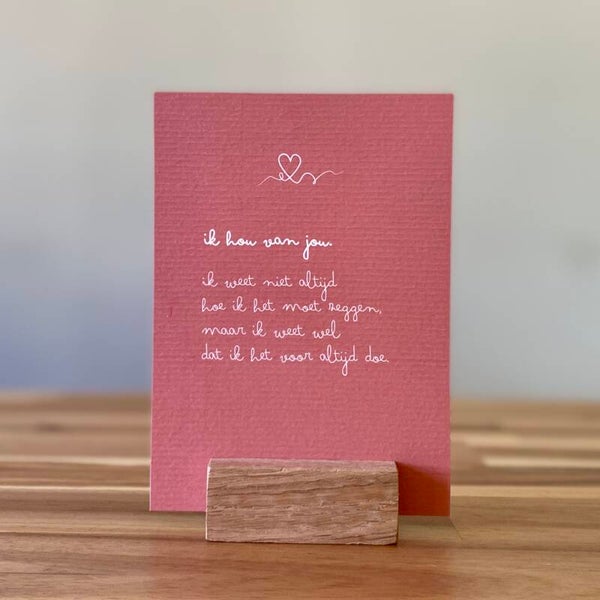 ik hou van jou.
ik weet niet altijd
hoe ik het moet zeggen,
maar ik weet wel
dat ik het voor altijd doe.